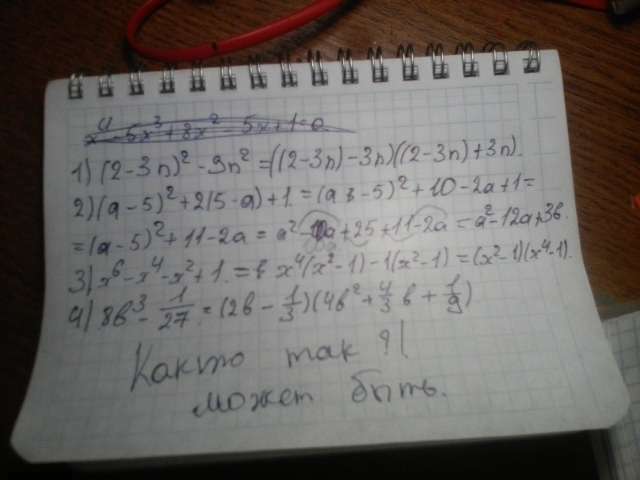 x⁴-5x³+8x²-5x+1=0
1) (2-3n)²-9n² = ((2-3n)-3n)((2-3n)+3n).
2) (a-5)²+2(5-a)+1 = (a-5)²+10-2a+1=
= (a-5)²+11-2a = a²-10a+25+11-2a = a²-12a+36.
3) x⁶-x⁴-x²+1. = x⁴(x²-1)-1(x²-1) = (x²-1)(x⁴-1).
4) 8b³-1/27 = (2b-1/3)(4b²+4/3b+1/9)
Както так
может быть.